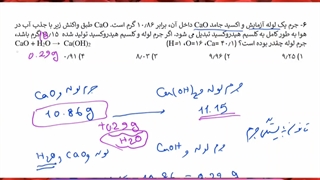 ۶- جرم یک لوله آزمایش و اکسید جامد CaO داخل آن، برابر ۱۰٫۸۶ گرم است. CaO طبق واکنش زیر با جذب آب در
هوا به طور کامل به کلسیم هیدروکسید تبدیل می شود. اگر جرم لوله و کلسیم هیدروکسید تولید شده ۱۱٫۱۵ گرم باشد،
جرم لوله چقدر بوده است؟ (H=۱, O=۱۶, Ca=۴۰) CaO + H₂O → Ca(OH)₂
۱) ۹/۲۵ ۲) ۹/۹۶ ۳) ۸/۰۳ ۴) ۰/۹۱
0.29g
جرم لوله و CaO جرم لوله و Ca(OH)₂
10.86g 11.15
+0.29g
H₂O
قانون پایستگی جرم
لوله و CaO و H₂O جرم لوله و CaOH